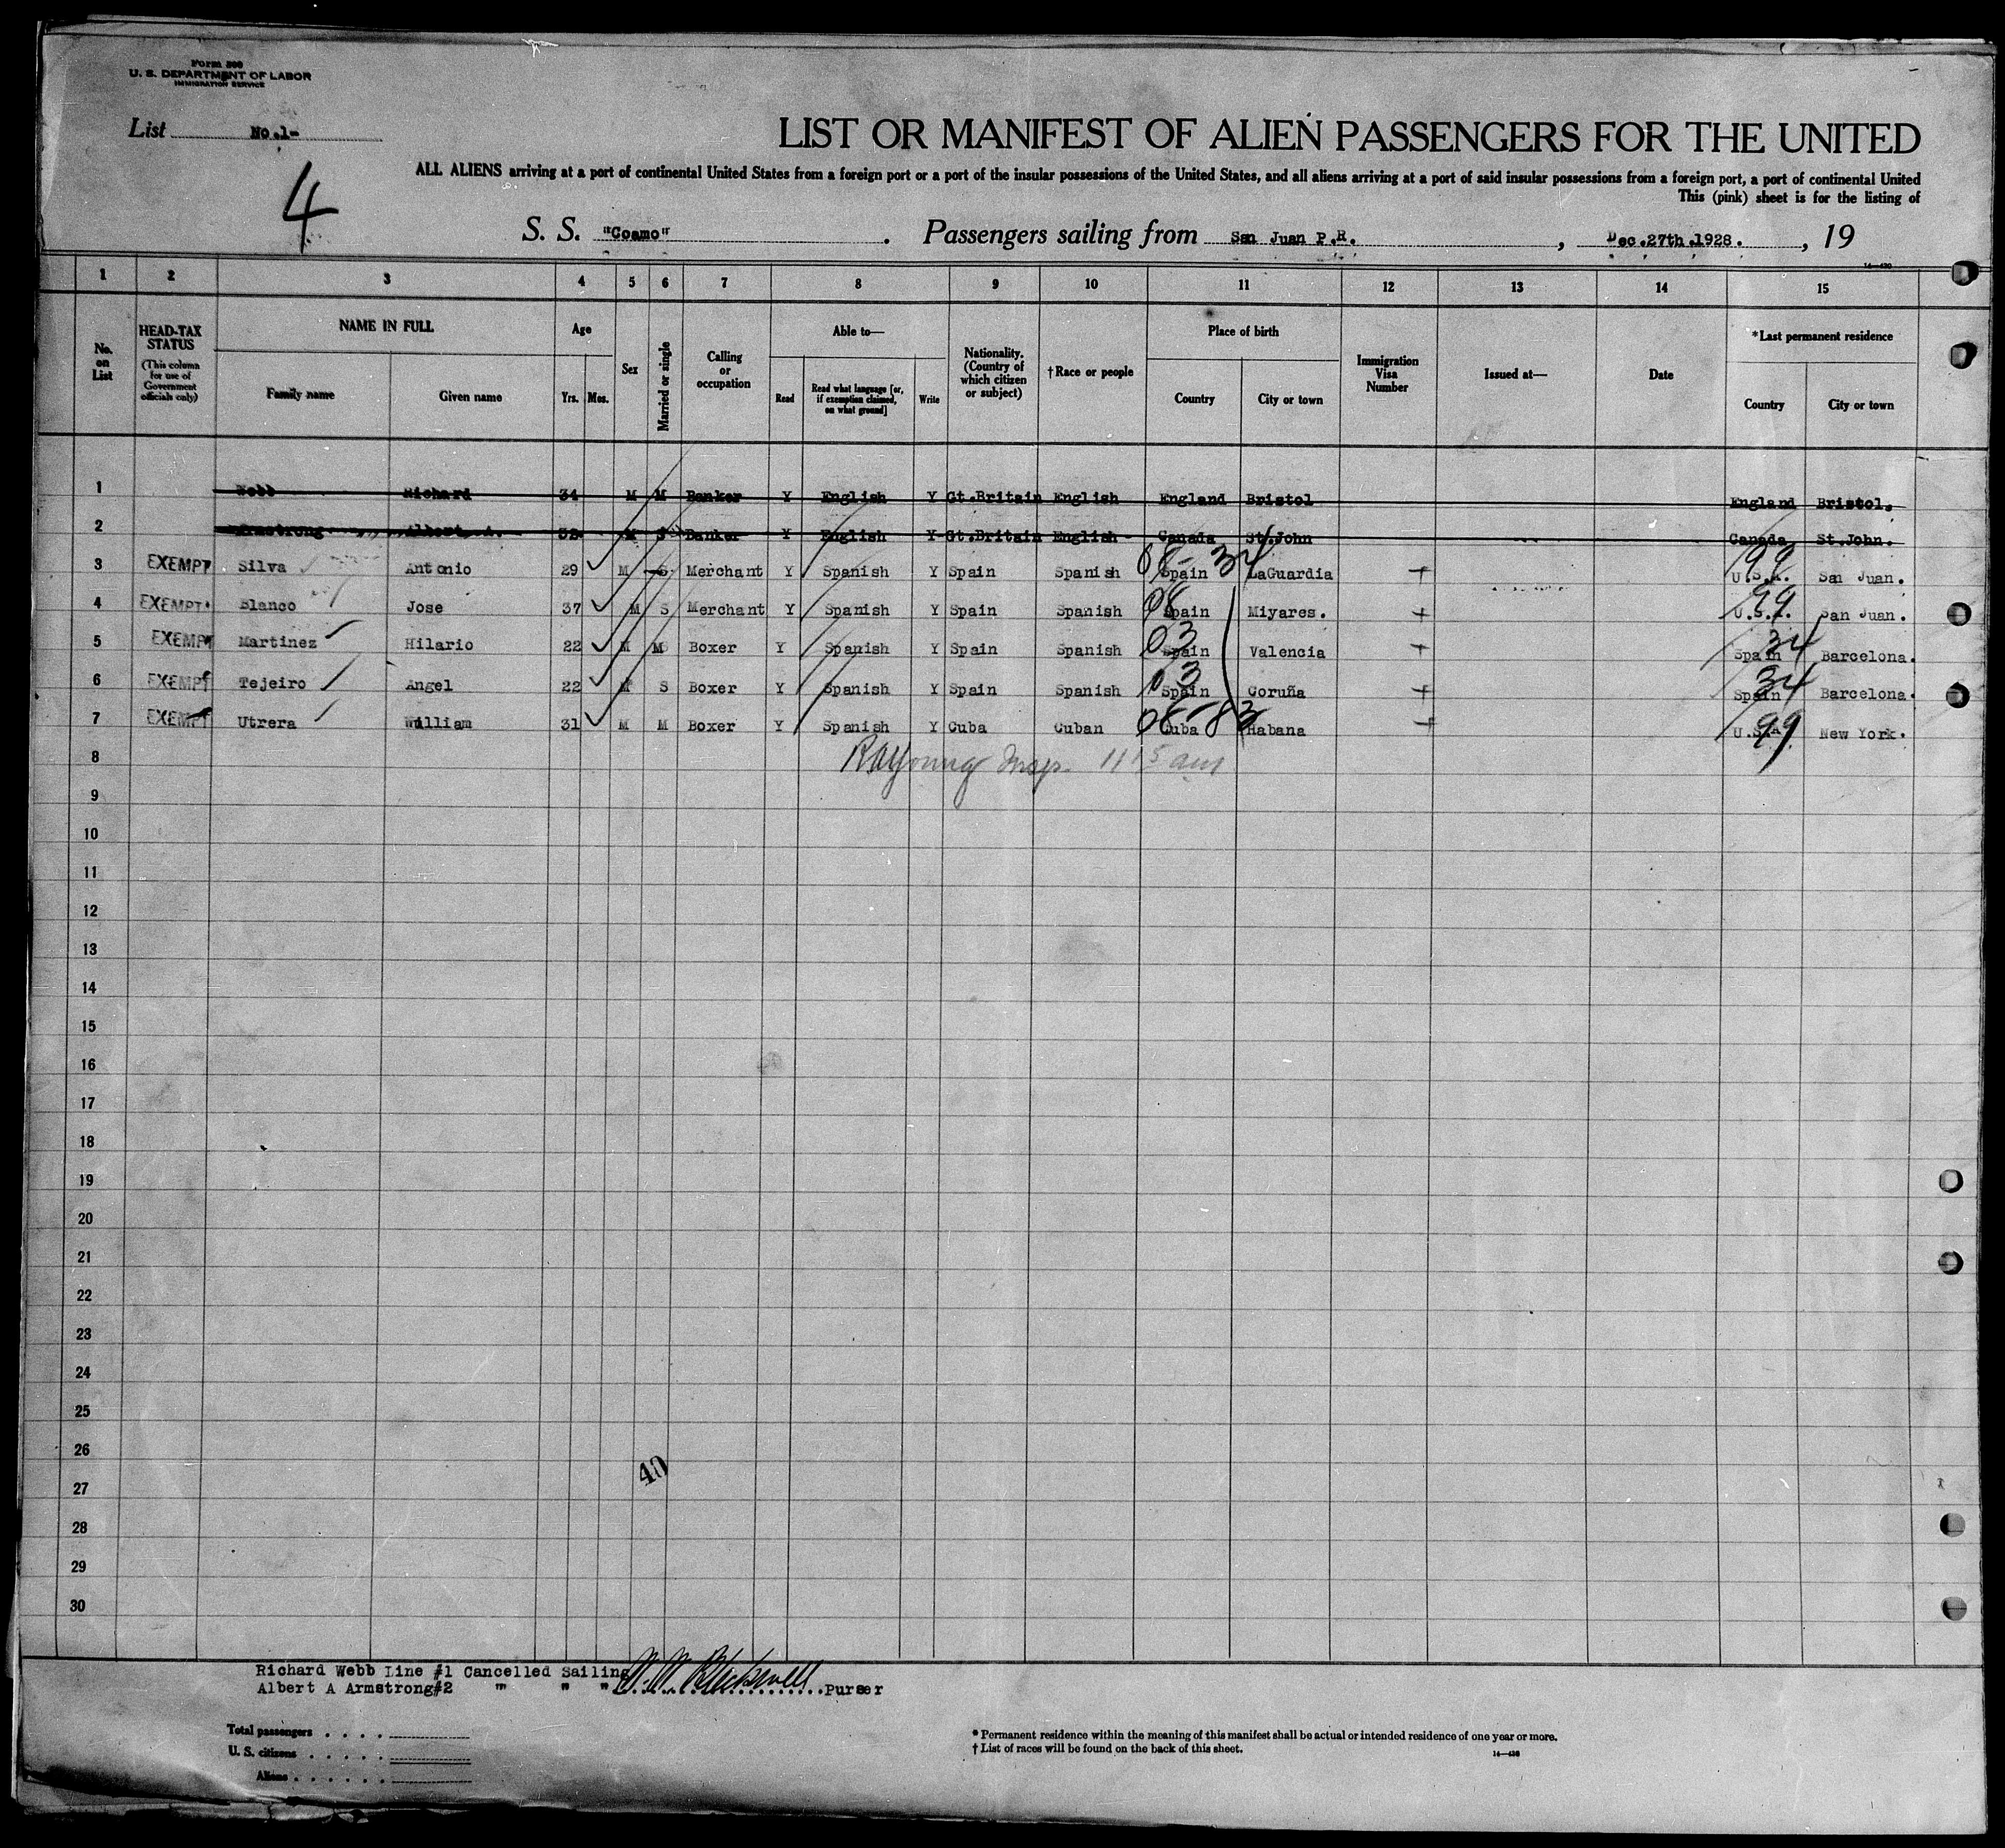 Form 500
U. S. DEPARTMENT OF LABOR
IMMIGRATION SERVICE
List No.1-
4
LIST OR MANIFEST OF ALIEN PASSENGERS FOR THE UNITED
ALL ALIENS arriving at a port of continental United States from a foreign port or a port of the insular possessions of the United States, and all aliens arriving at a port of said insular possessions from a foreign port, a port of continental United
This (pink) sheet is for the listing of
S. S. "Coamo" . Passengers sailing from San Juan P.R. , Dec.27th.1928. , 19
1 2 3 4 5 6 7 8 9 10 11 12 13 14 15
No. on List
HEAD-TAX STATUS
(This column for use of Government officials only)
NAME IN FULL
Family name Given name
Age
Yrs. Mos.
Sex
Married or single
Calling or occupation
Able to—
Read Read what language [or, if exemption claimed, on what ground] Write
Nationality. (Country of which citizen or subject)
†Race or people
Place of birth
Country City or town
Immigration Visa Number
Issued at—
Date
*Last permanent residence
Country City or town
1 Webb Richard 34 M M Banker Y English Y Gt.Britain English England Bristol England Bristol.
2 Armstrong Albert A. 38 M S Banker Y English Y Gt.Britain English Canada St.John Canada St.John.
3 EXEMPT Silva Antonio 29 M S Merchant Y Spanish Y Spain Spanish 08-34 Spain LaGuardia 99 U.S.A. San Juan.
4 EXEMPT Blanco Jose 37 M S Merchant Y Spanish Y Spain Spanish 08 Spain Miyares. 99 U.S.A. San Juan.
5 EXEMPT Martinez Hilario 22 M M Boxer Y Spanish Y Spain Spanish 03 Spain Valencia 34 Spain Barcelona.
6 EXEMPT Tejeiro Angel 22 M S Boxer Y Spanish Y Spain Spanish 03 Spain Coruña 34 Spain Barcelona.
7 EXEMPT Utrera William 31 M M Boxer Y Spanish Y Cuba Cuban 08-83 Cuba Habana 99 U.S.A. New York.
8 Young Insp. 11 15 am
9
10
11
12
13
14
15
16
17
18
19
20
21
22
23
24
25
26
40
27
28
29
30
Richard Webb Line #1 Cancelled Sailing
Albert A Armstrong#2 " " " Purser
Total passengers
U. S. citizens
Aliens
* Permanent residence within the meaning of this manifest shall be actual or intended residence of one year or more.
† List of races will be found on the back of this sheet.